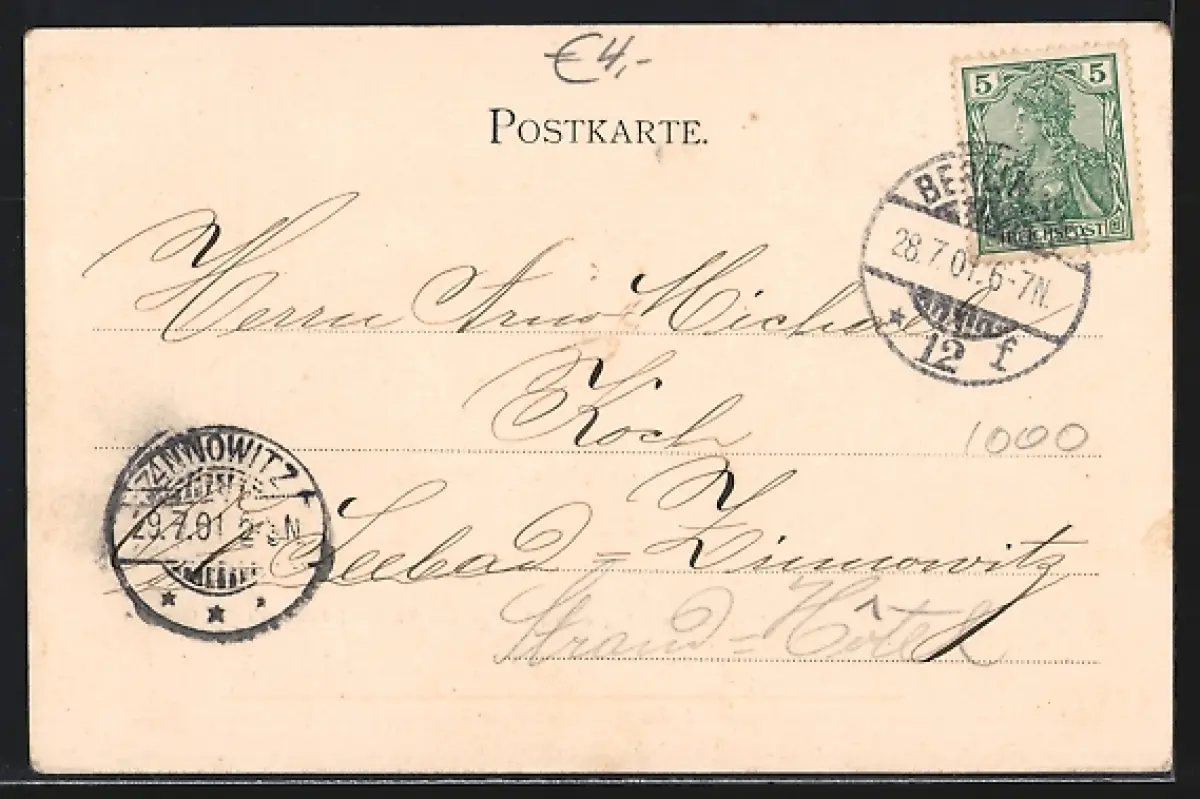 € 4,-
POSTKARTE.
5 5
REICHSPOST
BERLIN
28.7.01. 6-7N.
* 12 f
Herrn Arno Michael
Koch
1000
ZINNOWITZ
29.7.01 2-3N
* * *
Seebad = Zinnowitz
Strand = Hôtel